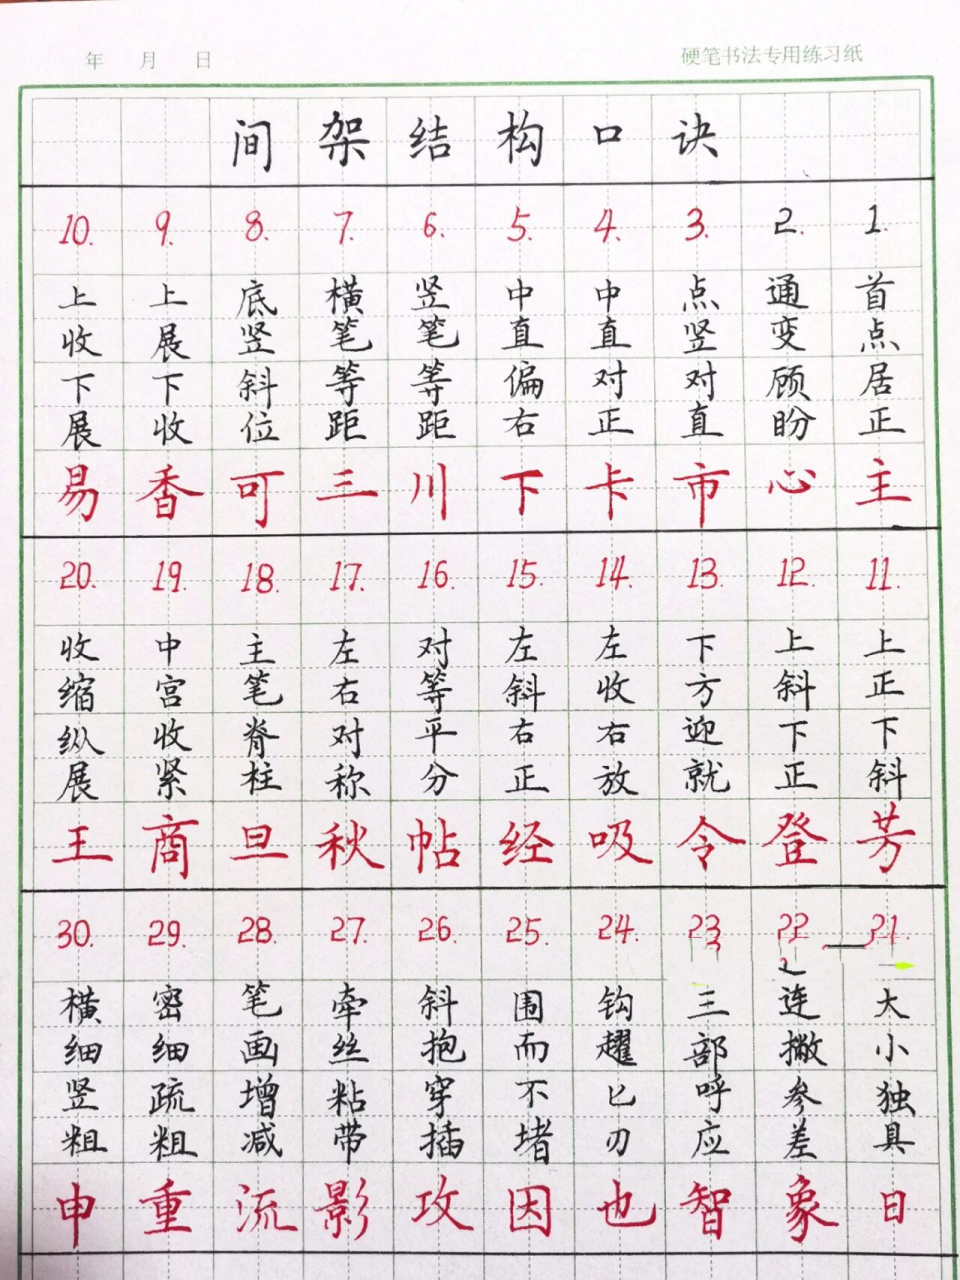 年 月 日
硬笔书法专用练习纸
间架结构口诀
1.
首点居正
主
2.
通变顾盼
心
3.
点竖对直
市
4.
中直对正
卡
5.
中直偏右
下
6.
竖笔等距
川
7.
横笔等距
三
8.
底竖斜位
可
9.
上展下收
香
10.
上收下展
易
11.
上正下斜
芳
12.
上斜下正
登
13.
下方迎就
令
14.
左收右放
吸
15.
左斜右正
经
16.
对等平分
帖
17.
左右对称
秋
18.
主笔脊柱
旦
19.
中宫收紧
商
20.
收缩纵展
王
21.
大小独具
日
22
连撇参差
象
23
三部呼应
智
24.
钩趯匕刃
也
25.
围而不堵
因
26.
斜抱穿插
攻
27.
牵丝粘带
影
28.
笔画增减
流
29.
密细疏粗
重
30.
横细竖粗
申